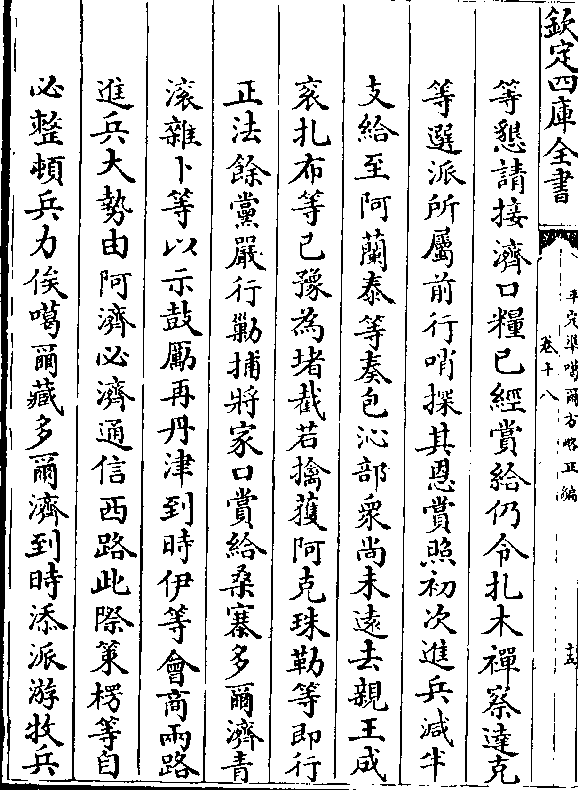 欽定四庫全書
平定準噶爾方略正編
卷十八
等懇請接濟口糧已經賞給仍令扎木禪察達克
等選派所屬前行哨探其恩賞照初次進兵減半
支給至阿蘭泰等奏包沁部衆尚未遠去親王成
衮扎布等已豫為堵截若擒獲阿克珠勒等即行
正法餘黨嚴行勦捕將家口賞給桑寨多爾濟青
滚雜卜等以示鼓勵再丹津到時伊等會商兩路
進兵大勢由阿濟必濟通信西路此際策楞等自
必整頓兵力俟噶爾藏多爾濟到時添派游牧兵